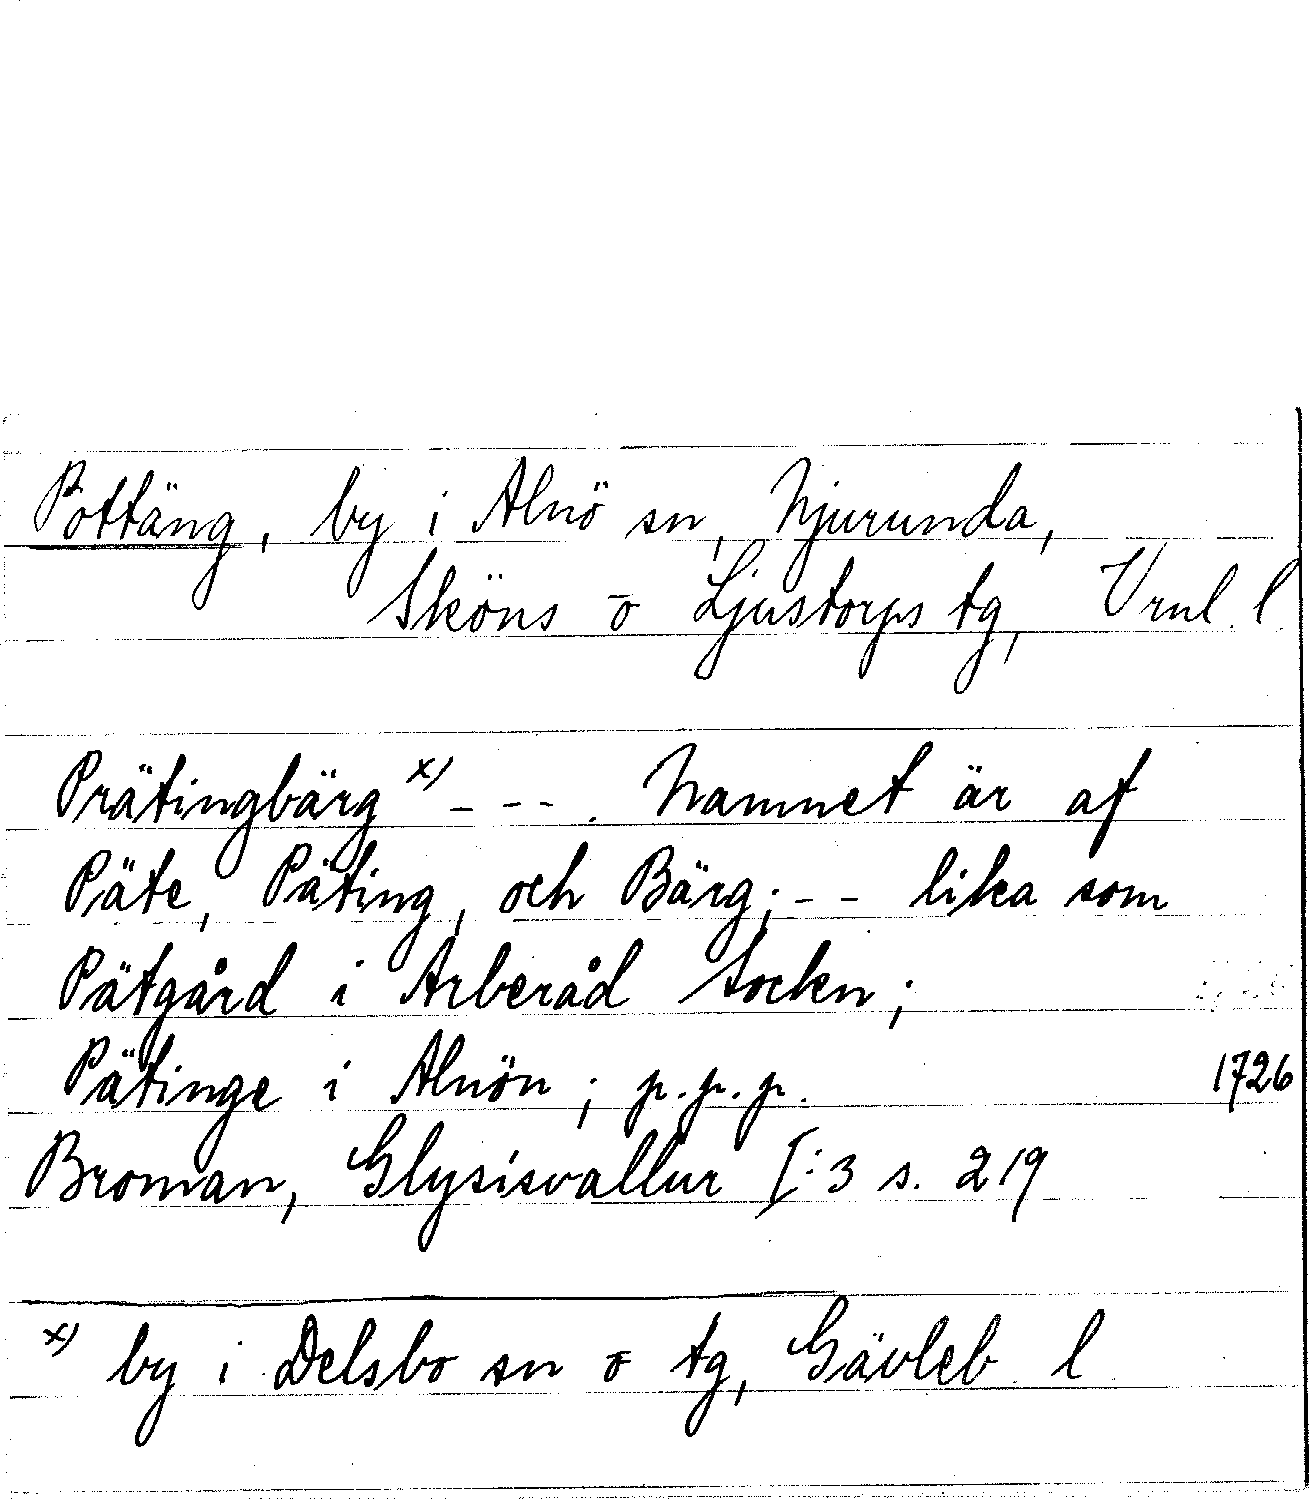 Pottäng, by i Alnö sn, Njurunda,
Sköns o Ljustorps tg, Vrnl. l
Prätingbärg x) - - - . Namnet är af
Päte, Päting, och Bärg; - - lika som
Pätgård i Arberåd socken;
Pätinge i Alnön; p.p.p. 1726
Broman, Glysisvallur I:3 s. 219
x) by i Delsbo sn o tg, Gävleb l